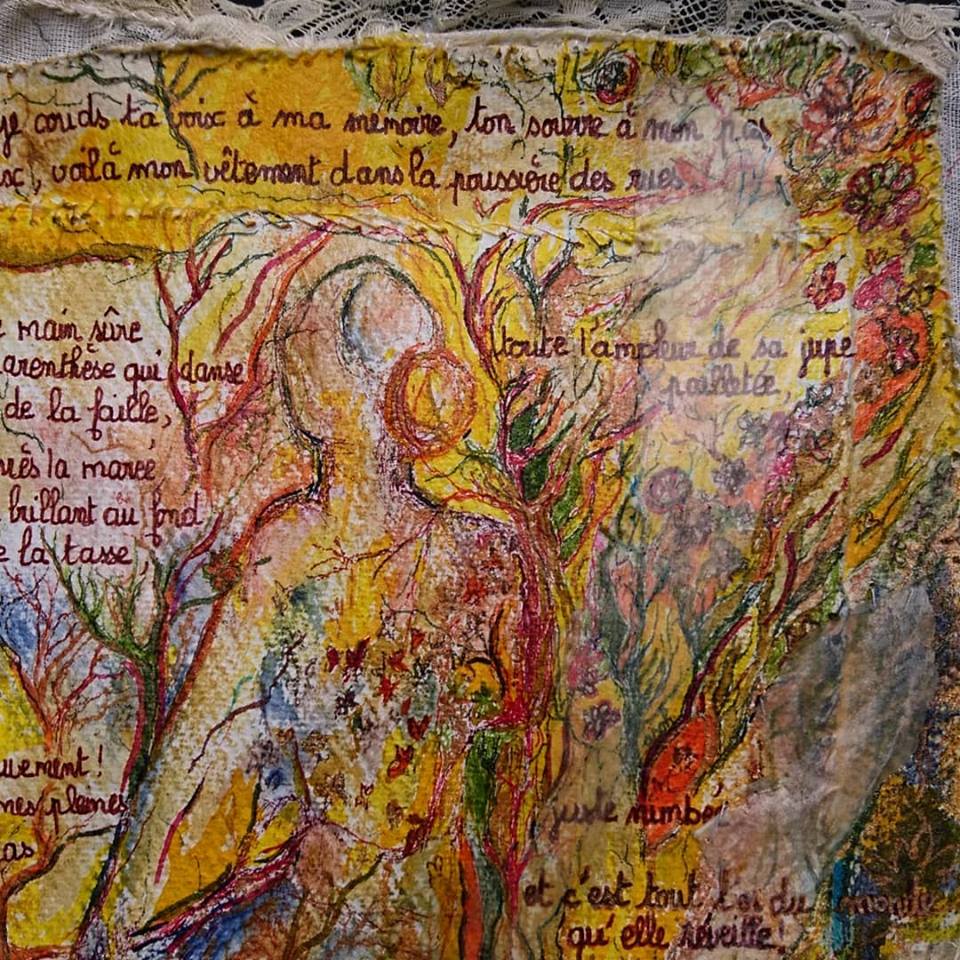 je couds ta voix à ma mémoire, ton sourire à mon pas
, voilà mon vêtement dans la poussière des rues
main sûre
arenthèse qui danse
de la faille,
la marée
brillant au fond
la tasse,
toute l'ampleur de sa jupe
pailletée,
uement!
pleines
as
juste nimbé
et c'est tout du monde
qu'elle réveille!